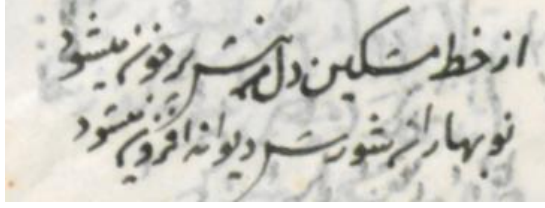 از خط مشکین دل پرخون میشود
نوبهاران شورش دیوانه افزون میشود